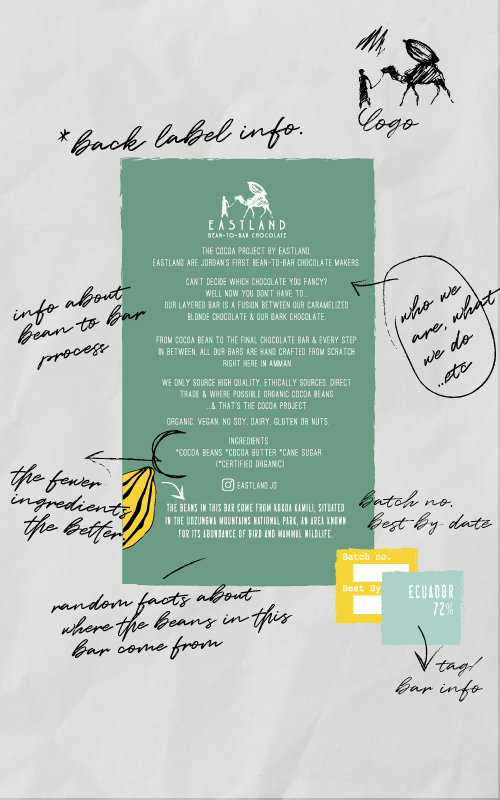 logo
*back label info.
EASTLAND
BEAN-TO-BAR CHOCOLATE
THE COCOA PROJECT BY EASTLAND.
EASTLAND ARE JORDAN'S FIRST BEAN-TO-BAR CHOCOLATE MAKERS.
CAN'T DECIDE WHICH CHOCOLATE YOU FANCY?
WELL NOW YOU DON'T HAVE TO...
OUR LAYERED BAR IS A FUSION BETWEEN OUR CARAMELIZED
BLONDE CHOCOLATE & OUR DARK CHOCOLATE.
info about
bean to bar
process
who we
are, what
we do
..etc
FROM COCOA BEAN TO THE FINAL CHOCOLATE BAR & EVERY STEP
IN BETWEEN, ALL OUR BARS ARE HAND CRAFTED FROM SCRATCH
RIGHT HERE IN AMMAN.
WE ONLY SOURCE HIGH QUALITY, ETHICALLY SOURCED, DIRECT
TRADE & WHERE POSSIBLE ORGANIC COCOA BEANS
..& THAT'S THE COCOA PROJECT
ORGANIC, VEGAN, NO SOY, DAIRY, GLUTEN OR NUTS.
INGREDIENTS
*COCOA BEANS *COCOA BUTTER *CANE SUGAR
(*CERTIFIED ORGANIC)
the fewer
ingredients
the better
EASTLAND.JO
THE BEANS IN THIS BAR COME FROM KOKOA KAMILI, SITUATED
IN THE UDZUNGWA MOUNTAINS NATIONAL PARK, AN AREA KNOWN
FOR ITS ABUNDANCE OF BIRD AND MAMMAL WILDLIFE.
Batch no.
Best-by-date
Batch no.
Best By
ECUADOR
72%
random facts about
where the beans in this
bar come from
tag/
bar info